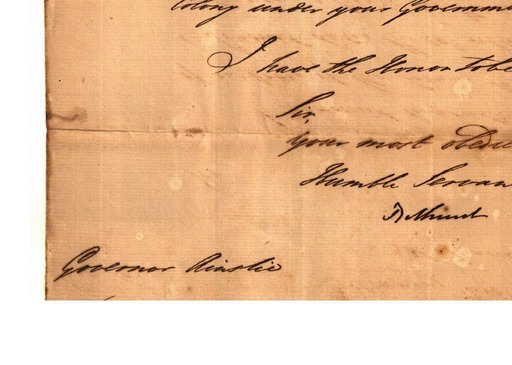 Colony under your Governme
I have the Honor to be
Sir,
your most obedie
Humble Servan
Governor Ainslie